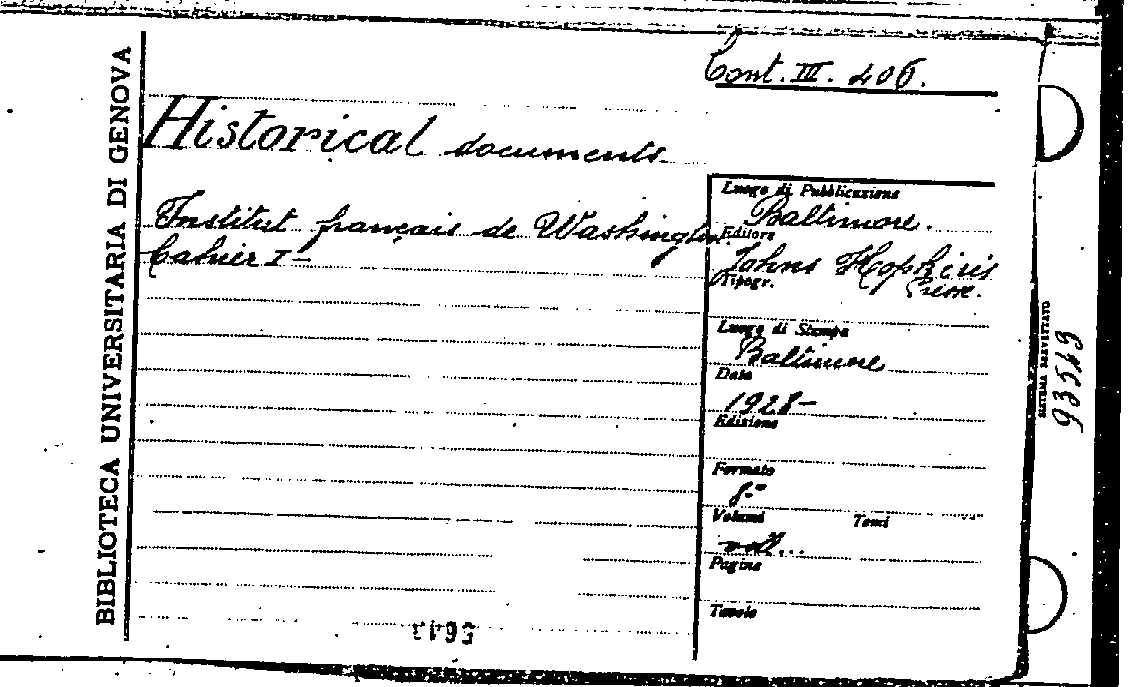 BIBLIOTECA UNIVERSITARIA DI GENOVA
Cont. III. 406.
Historical documents
Institut français de Washington.
Cahier I -
Luogo di Pubblicazione
Baltimore.
Editore
Johns Hopkins
Press.
Tipogr.
Luogo di Stampa
Baltimore
Data
1928-
Edizione
Formato
8.°
Volumi Tomi
voll...
Pagine
Tavole
93549